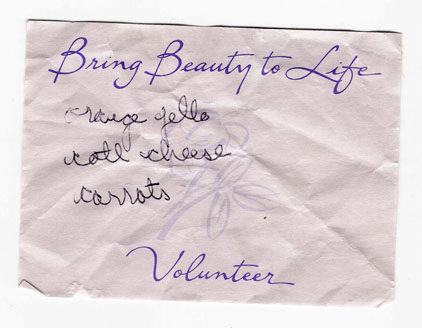 Bring Beauty to Life
orange jello
cott cheese
carrots
Volunteer